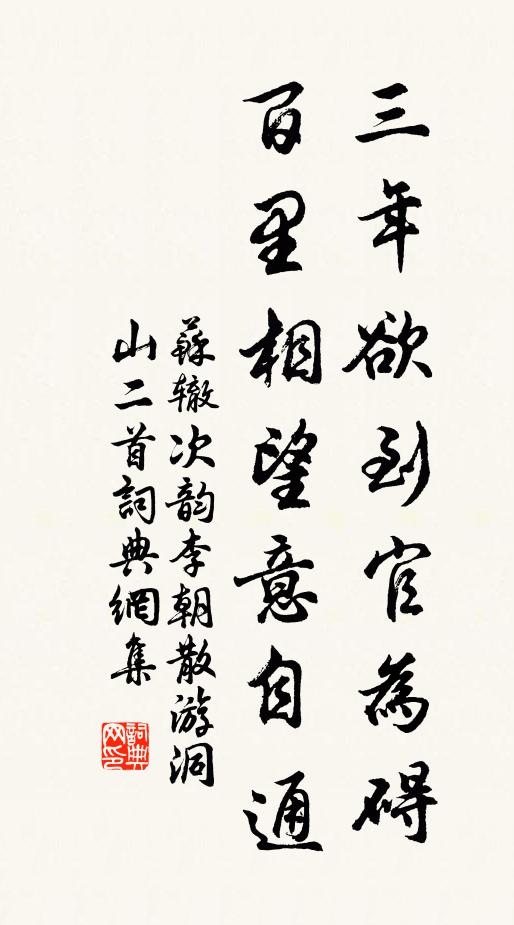 三年欲到官為碍
百里相望意自通
蘇辙次韵李朝散游洞
山二首詞典網集
詞典网印